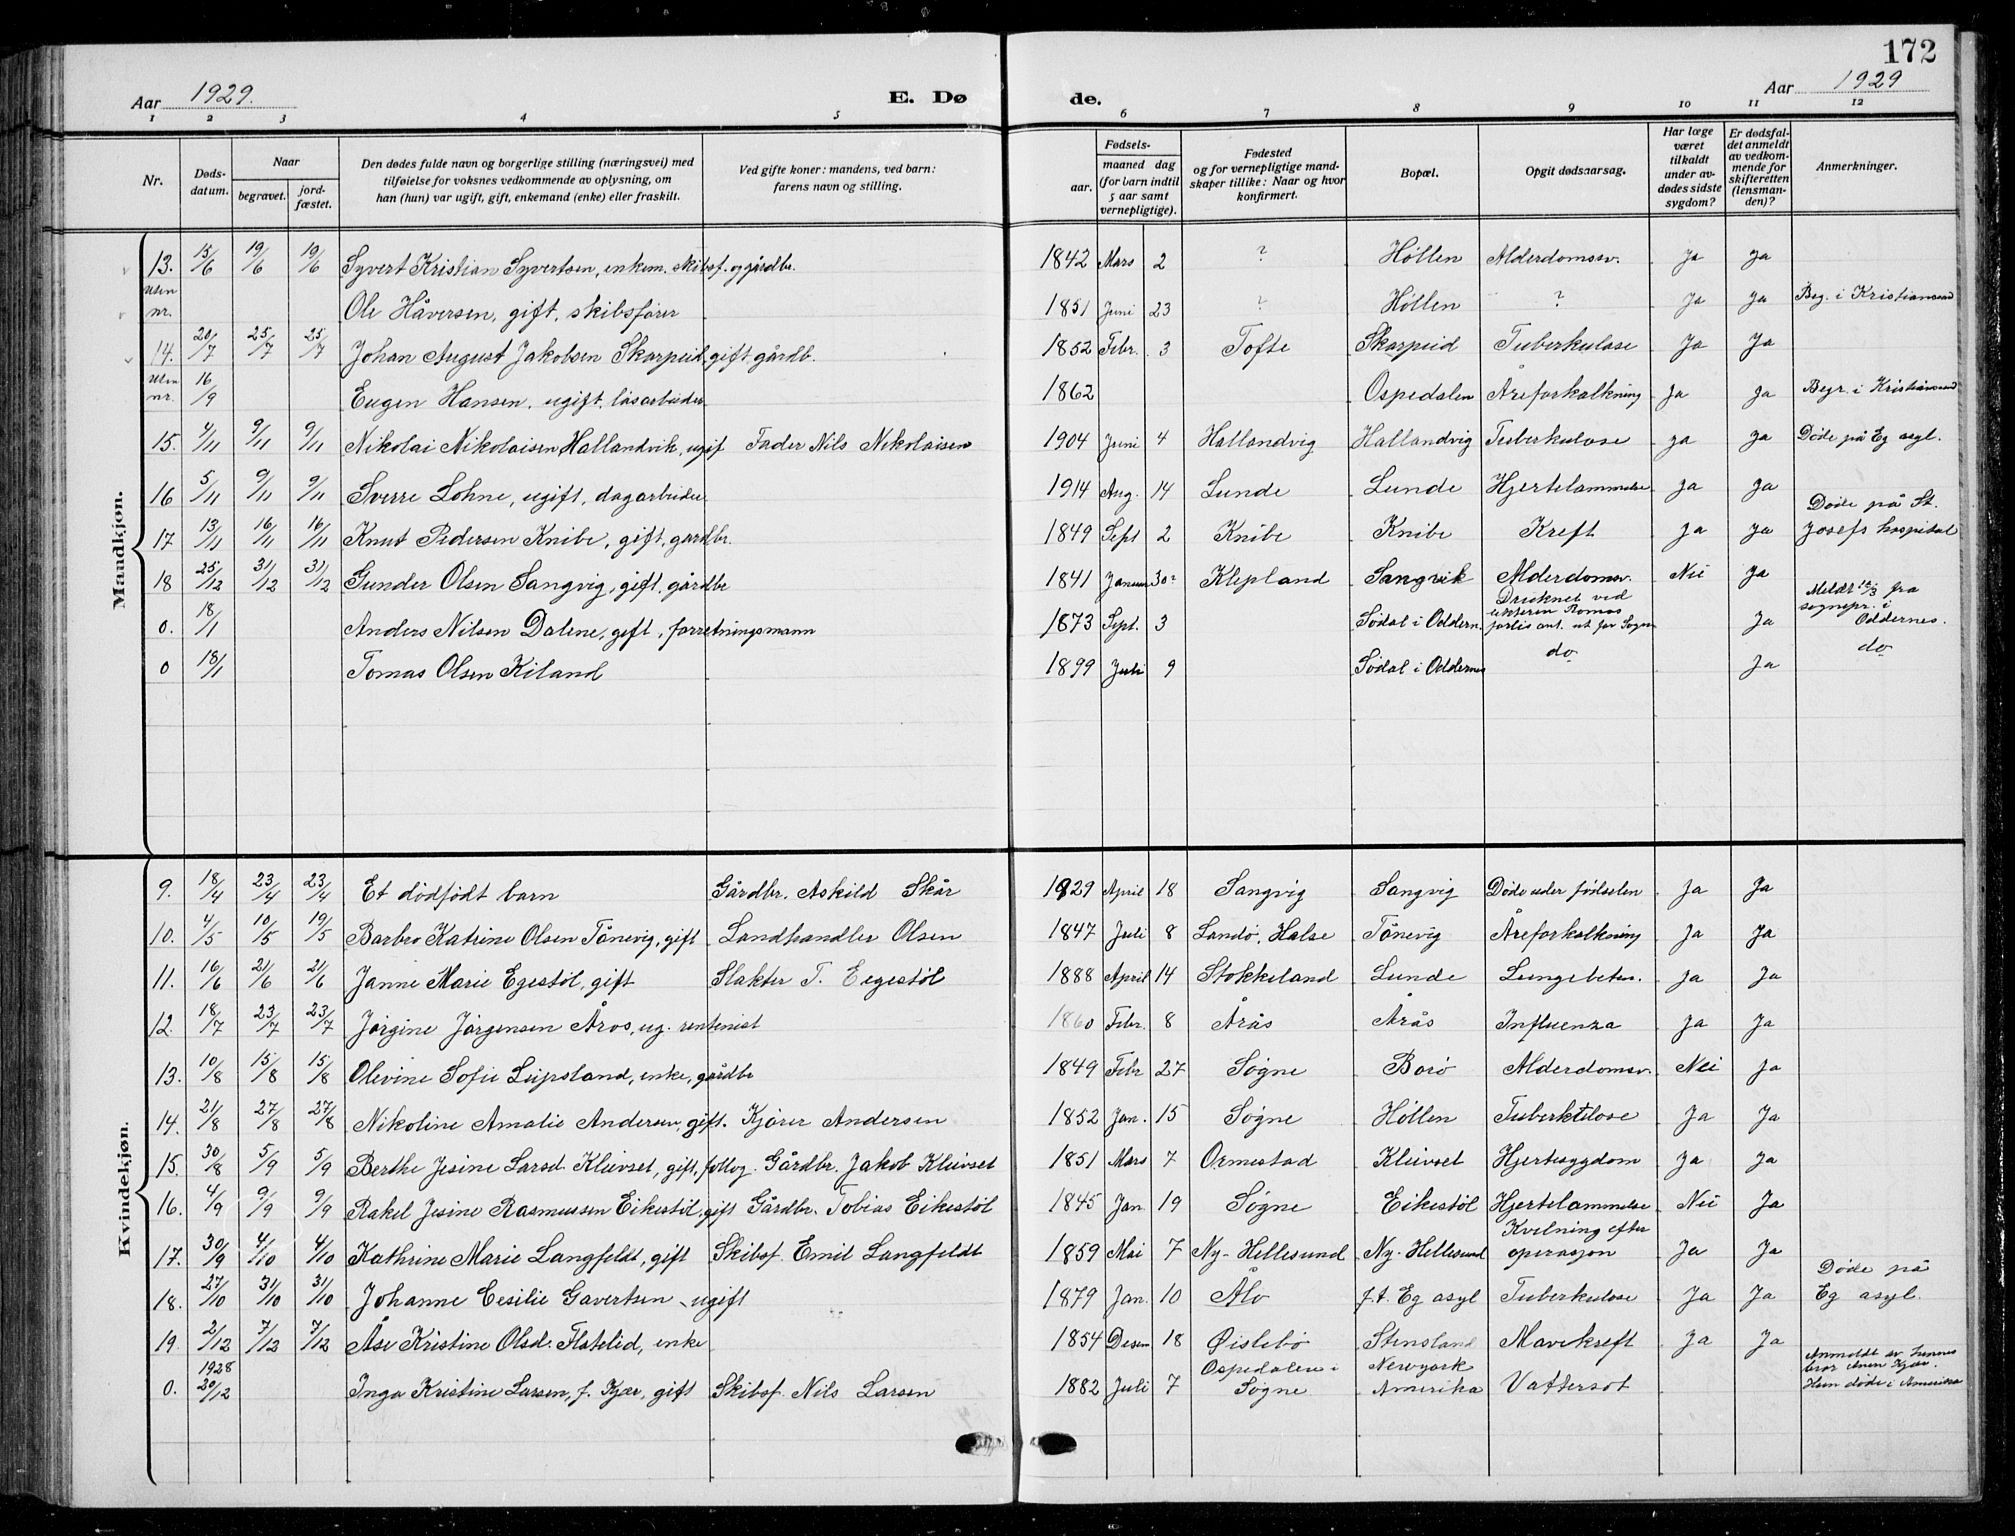 172
Aar 1929. E. Dø de. Aar 1929
1 2 3 4 5 6 7 8 9 10 11 12
Nr. Døds-datum. Naar begravet. jord-fæstet. Den dødes fulde navn og borgerlige stilling (næringsvei) med tilføielse for voksnes vedkommende av oplysning, om han (hun) var ugift, gift, enkemand (enke) eller fraskilt. Ved gifte koner: mandens, ved barn: farens navn og stilling. Fødsels- aar. maaned dag (for barn indtil 5 aar samt vernepligtige). Fødested og for vernepligtige mand-skaper tillike: Naar og hvor konfirmert. Bopæl. Opgit dødsaarsag. Har læge været tilkaldt under av-dødes sidste sygdom? Er dødsfal-det anmeldt av vedkom-mende for skifteretten (lensman-den)? Anmerkninger.
Mandkjøn.
13. 15/6 19/6 19/6 Syvert Kristian Syvertsen, enkem. skibsf. og gårdbr. 1842 Mars 2 ? Höllen Alderdomssv. Ja Ja
Uten nr. Ole Håversen, gift, skibsfører 1851 Juni 23 ? Höllen ? Ja Ja Beg. i Kristiansand
14. 20/7 25/7 25/7 Johan August Jakobsen Skarpeid, gift gårdb. 1852 Febr. 3 Tofte Skarpeid Tuberkulose Ja Ja
Uten nr. 16/9 Eugen Hansen, ugift, løsarbeider 1862 Ospedalen Åreforkalkning Ja Ja Begr. i Kristiansand
15. 4/11 9/11 9/11 Nikolai Nikolaisen Hallandvik, ugif Fader Nils Nikolaisen 1904 Juni 4 Hallandvig Hallandvig Tuberkulose Ja Ja Døde på Eg asyl.
16 5/11 9/11 9/11 Sverre Lohne, ugift, dagarbeider 1914 Aug. 14 Lunde Lunde Hjertelammelse Ja Ja
17 13/11 16/11 16/11 Knut Pedersen Knibe, gift, gardbr. 1849 Sept 2 Knibe Knibe Kreft Ja Ja Døde på St. Josefs hospital
18 25/12 31/12 31/12 Gunder Olsen Sangvig, gift, gårdbr 1841 Januar 30? Klepland Sangvik Alderdomsv. Nei Ja
0. 18/1 Anders Nilsen Dalene, gift, forretningsmann 1873 Sept. 3 Södal i Oddern. Drucknet ved skøteren Romas forlis ant. ut for Sogn Ja Meldt 12/3 fra sognepr. i Oddernes.
0 18/1 Tomas Olsen Kiland 1899 Juli 9 Södal i Oddernes do Ja do
Kvindekjøn.
9. 18/4 23/4 23/4 Et dödfödt barn Gårdbr. Askild Skår 1929 April 18 Sangvig Sangvig Døde under fødselen Ja Ja
10. 4/5 10/5 19/5 Barbro Katrine Olsen Tånevig, gift Landhandler Olsen 1847 Juli 8 Landö, Halse Tånevig Åreforkalkning Ja Ja
11. 16/6 21/6 21/6 Janne Marie Egestöl, gift Slakter T. Eegestöl 1888 April 14 Stokkeland Lunde Lungebeten. Ja Ja
12. 18/7 23/7 23/7 Jörgine Jörgensen Åros, ug. rentenist 1860 Febr. 8 Årås Årås Influenza Ja Ja
13. 10/8 15/8 15/8 Olevine Sofie Leipsland, enke, gårdbr 1849 Febr 27 Søgne Borö Alderdomsv. Nei Ja
14. 21/8 27/8 27/8 Nikoline Amalie Andersen, gift. Kjörer Andersen 1852 Jan. 15 Søgne Höllen Tuberkulose Ja Ja
15. 30/8 5/9 5/9 Berthe Jesine Larsd. Kleivset, gift, follog. Gårdbr. Jakob Kleivset 1851 Mars 7 Ormestad Kleivset Hjertesygdom Ja Ja
16. 4/9 9/9 9/9 Rakel Jesine Rasmussen Eikestöl, gift Gårdbr. Tobias Eikestöl 1845 Jan. 19 Søgne Eikestöl Hjertelammelse Nei Ja
17. 30/9 4/10 4/10 Kathrine Marie Langfeldt, gift Skibsf. Emil Langfeldt 1859 Mai 7 Ny-Hellesund Ny-Hellesund Kvelning efter operasjon Ja Ja
18. 27/10 31/10 31/10 Johanne Cesilie Gavertsen, ugift 1879 Jan. 10 Ålo f.t. Eg asyl Tuberkulose Ja Ja Døde på Eg asyl.
19. 2/12 7/12 7/12 Åse Kristine Olsd. Flatelid, enke 1854 Desem 18 Øislebö Stensland Mavekreft Ja Ja
0. 1928 20/12 Inga Kristine Larsen, f. Kjær, gift Skibsf. Nils Larsen 1882 Juli 7 Ospedalen i Søgne Newyork Amerika Vattersot Anmeldt av hennes bror Anen Kjær. Hun døde i Amerika